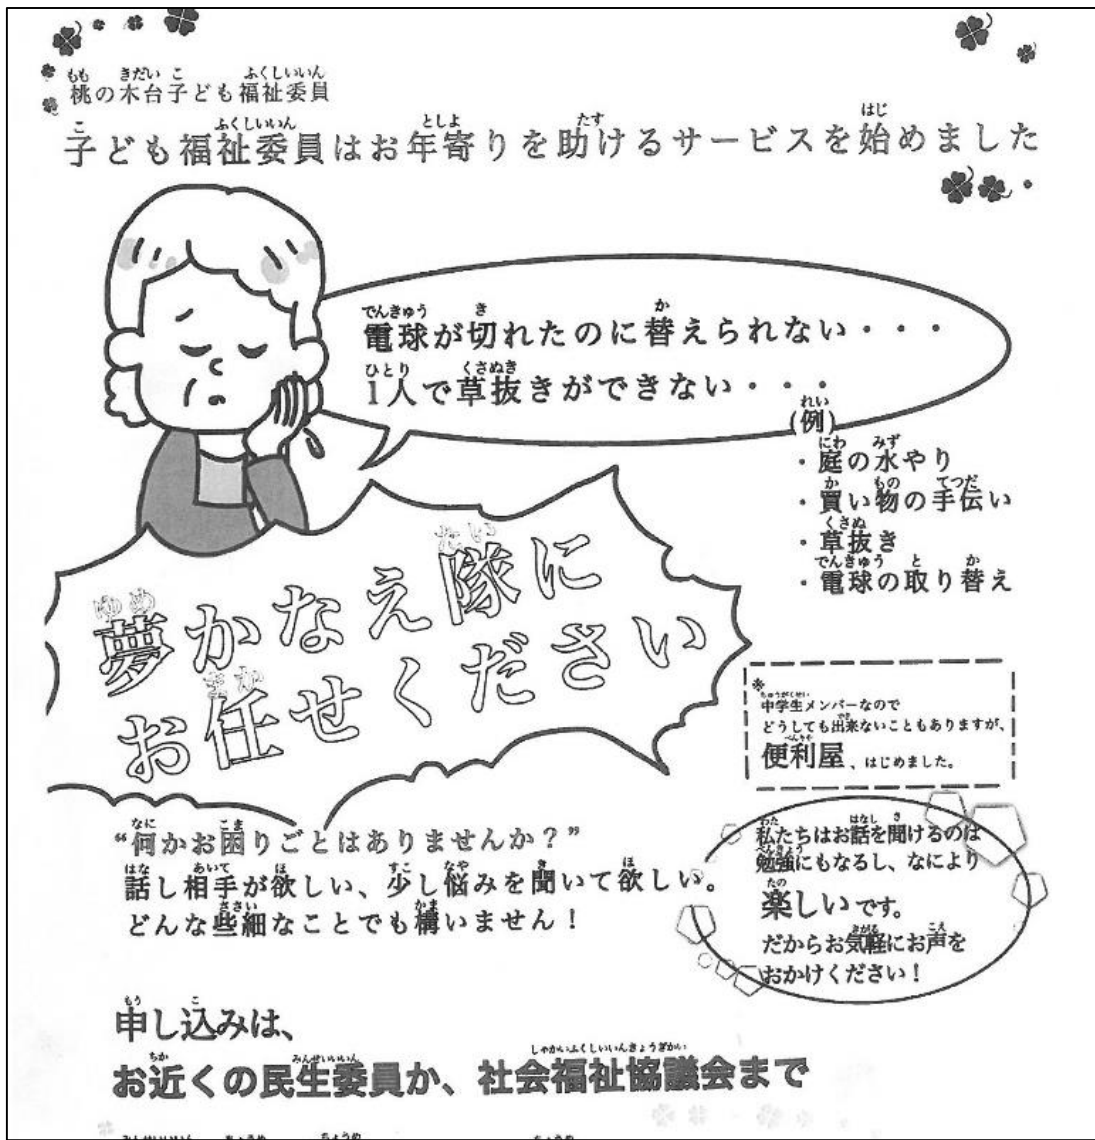 桃の木台子ども福祉委員
子ども福祉委員はお年寄りを助けるサービスを始めました
電球が切れたのに替えられない・・・
1人で草抜きができない・・・
(例)
・庭の水やり
・買い物の手伝い
・草抜き
・電球の取り替え
夢かなえ隊に
お任せください
※
中学生メンバーなので
どうしても出来ないこともありますが、
便利屋、はじめました。
“何かお困りごとはありませんか？”
話し相手が欲しい、少し悩みを聞いて欲しい。
どんな些細なことでも構いません！
私たちはお話を聞けるのは
勉強にもなるし、なにより
楽しいです。
だからお気軽にお声を
おかけください！
申し込みは、
お近くの民生委員か、社会福祉協議会まで